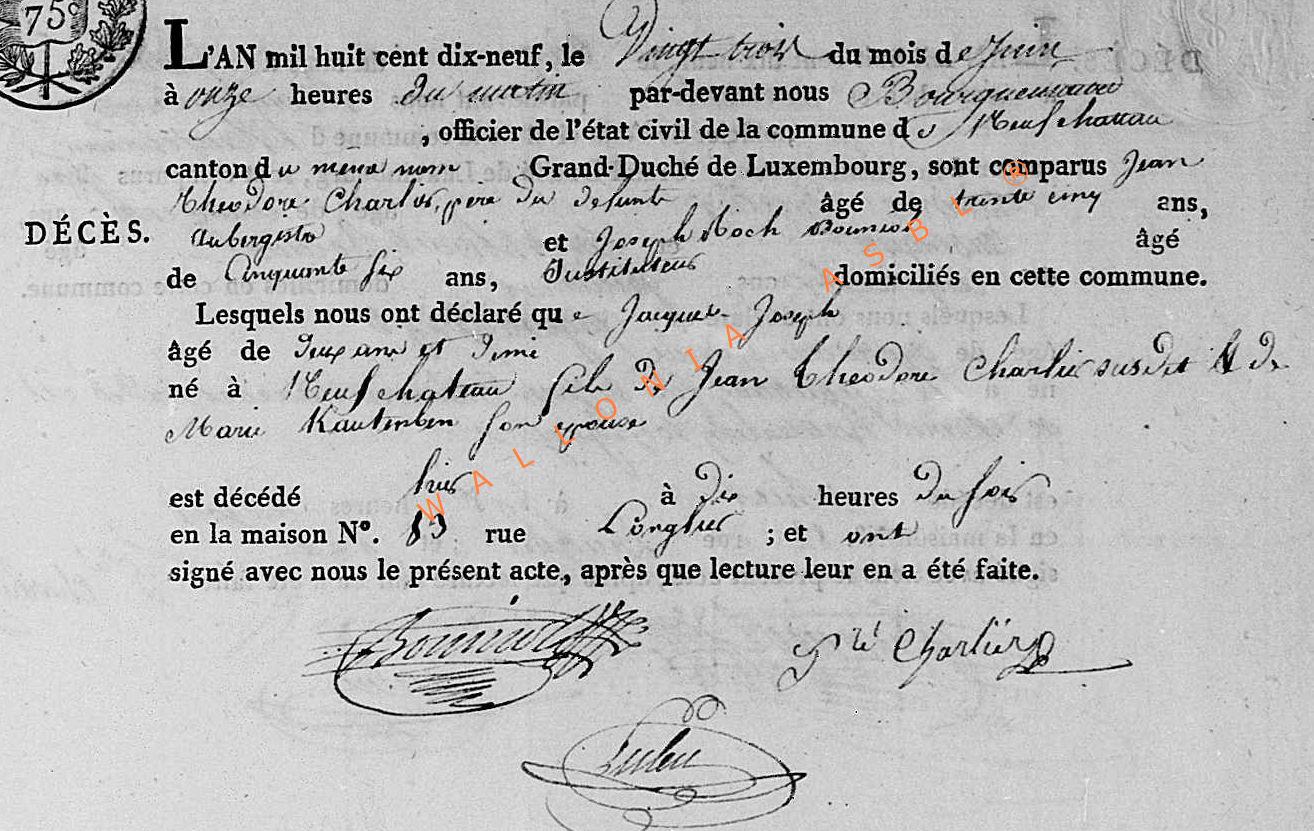 75c
L'AN mil huit cent dix-neuf, le Vingt trois du mois de Juin
à onze heures du matin par-devant nous
, officier de l'état civil de la commune de Neufchateau
canton du meme nom Grand-Duché de Luxembourg, sont comparus Jean
Theodore Charlier, pere du defunt âgé de trente cinq ans,
DÉCÈS. Aubergiste et Joseph Roch âgé
de Cinquante six ans, Instituteur domiciliés en cette commune.
Lesquels nous ont déclaré que Jacques Joseph
âgé de deux ans et demi
né à Neufchateau fils de Jean Theodore Charlier susdit & de
Marie son epouse
est décédé hier à dix heures du soir
en la maison N°. 83 rue Longlier ; et ont
signé avec nous le présent acte, après que lecture leur en a été faite.
Charlier
WALLONIA ASBL ®